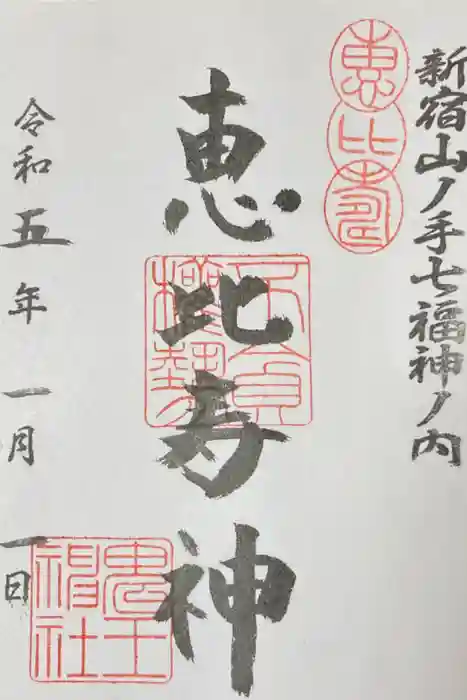 新宿山ノ手七福神ノ内
恵比寿
恵比寿神
令和五年 一月 一日
鬼王
神社